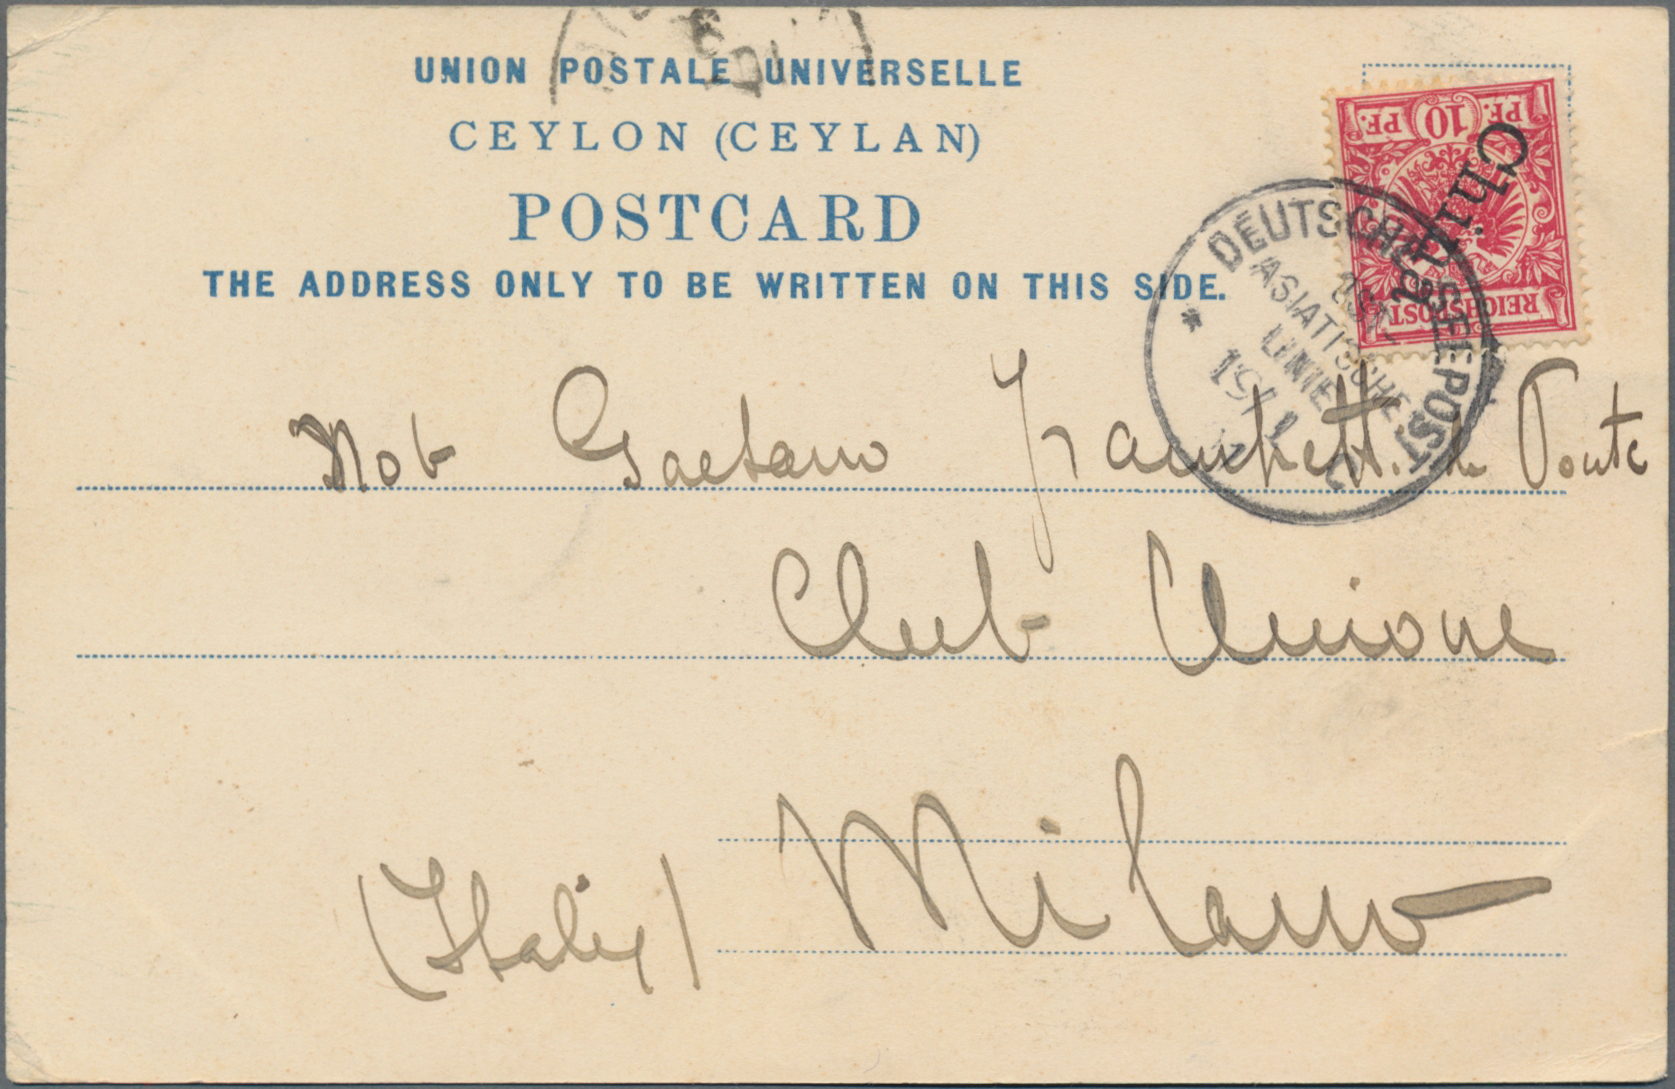 UNION POSTALE UNIVERSELLE
CEYLON (CEYLAN)
POSTCARD
THE ADDRESS ONLY TO BE WRITTEN ON THIS SIDE.
PF. 10 PF.
REICHSPOST
China
DEUTSCHE SEEPOST
OST
ASIATISCHE
LINIE
Nob Gaetano de Ponte
Club Unione
Milano
(Italy)